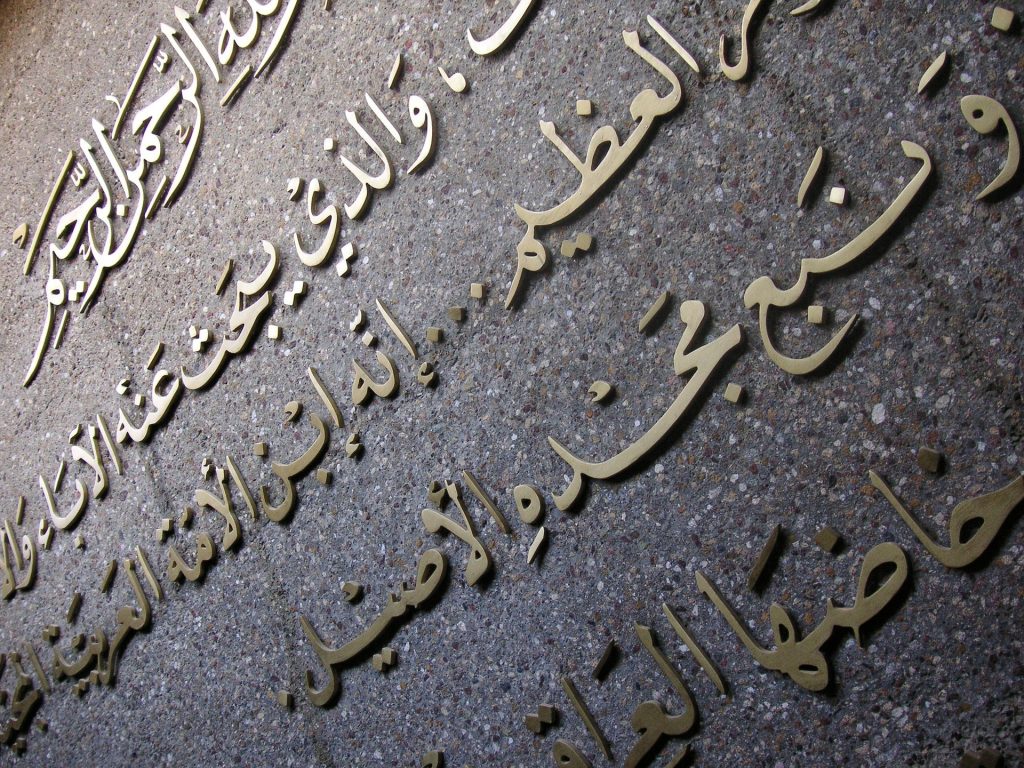 الرَّحْمنِ الرَّحِيمِ
، وَالذيْ يَبحَث عَنْه الآبَاء
العظيم .. إنه ابْن الأمَة العَربيَة
وَنَبع مَجْدهِ الأصيْل .
حَاضنهَا